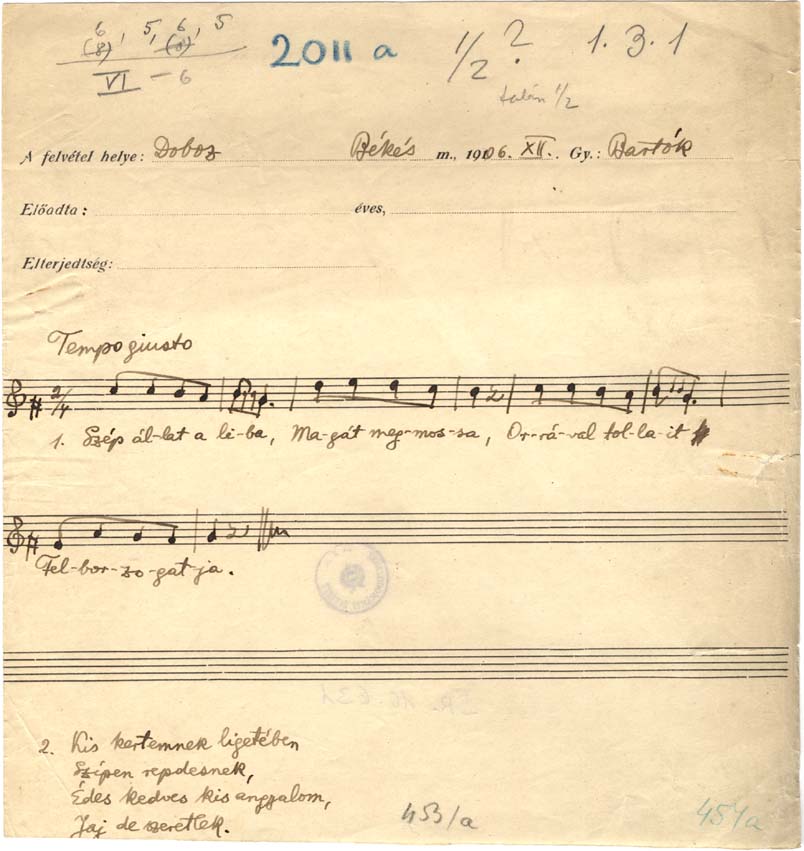 6 5, 6 5
(8), (8),
VI - 6
2011 a
1/2 ?
talán 1/2
1. 3. 1
A felvétel helye: Doboz Békés m., 1906. XII. Gy.: Bartók
Előadta: éves,
Elterjedtség:
Tempo giusto
2/4
1. Szép ál-lat a li-ba, Ma-gát meg-mos-sa, Or-rá-val tol-la-it
Fel-bor-zo-gat-ja.
2. Kis kertemnek ligetében
Szépen repdesnek,
Édes kedves kis angyalom,
Jaj de szeretlek.
453/a
454/a